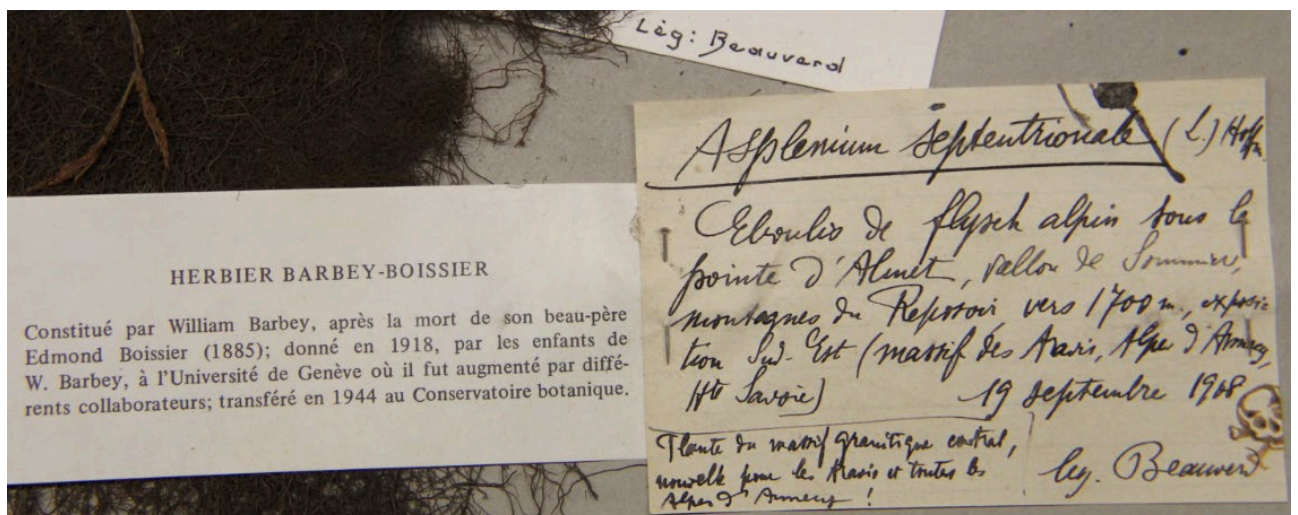 Lég: Beauverd
HERBIER BARBEY-BOISSIER
Constitué par William Barbey, après la mort de son beau-père
Edmond Boissier (1885); donné en 1918, par les enfants de
W. Barbey, à l'Université de Genève où il fut augmenté par diffé-
rents collaborateurs; transféré en 1944 au Conservatoire botanique.
Asplenium septentrionale (L.) Hoffm.
Eboulis de flysch alpin sous la
pointe d'Almet, vallon de Sommier,
montagnes du Reposoir vers 1700 m., exposi-
tion Sud-Est (massif des Aravis, Alpes d'Annecy,
Hte Savoie) 19 septembre 1908
Plante du massif granitique central,
nouvelle pour les Aravis et toutes les
Alpes d'Annecy !
leg. Beauverd